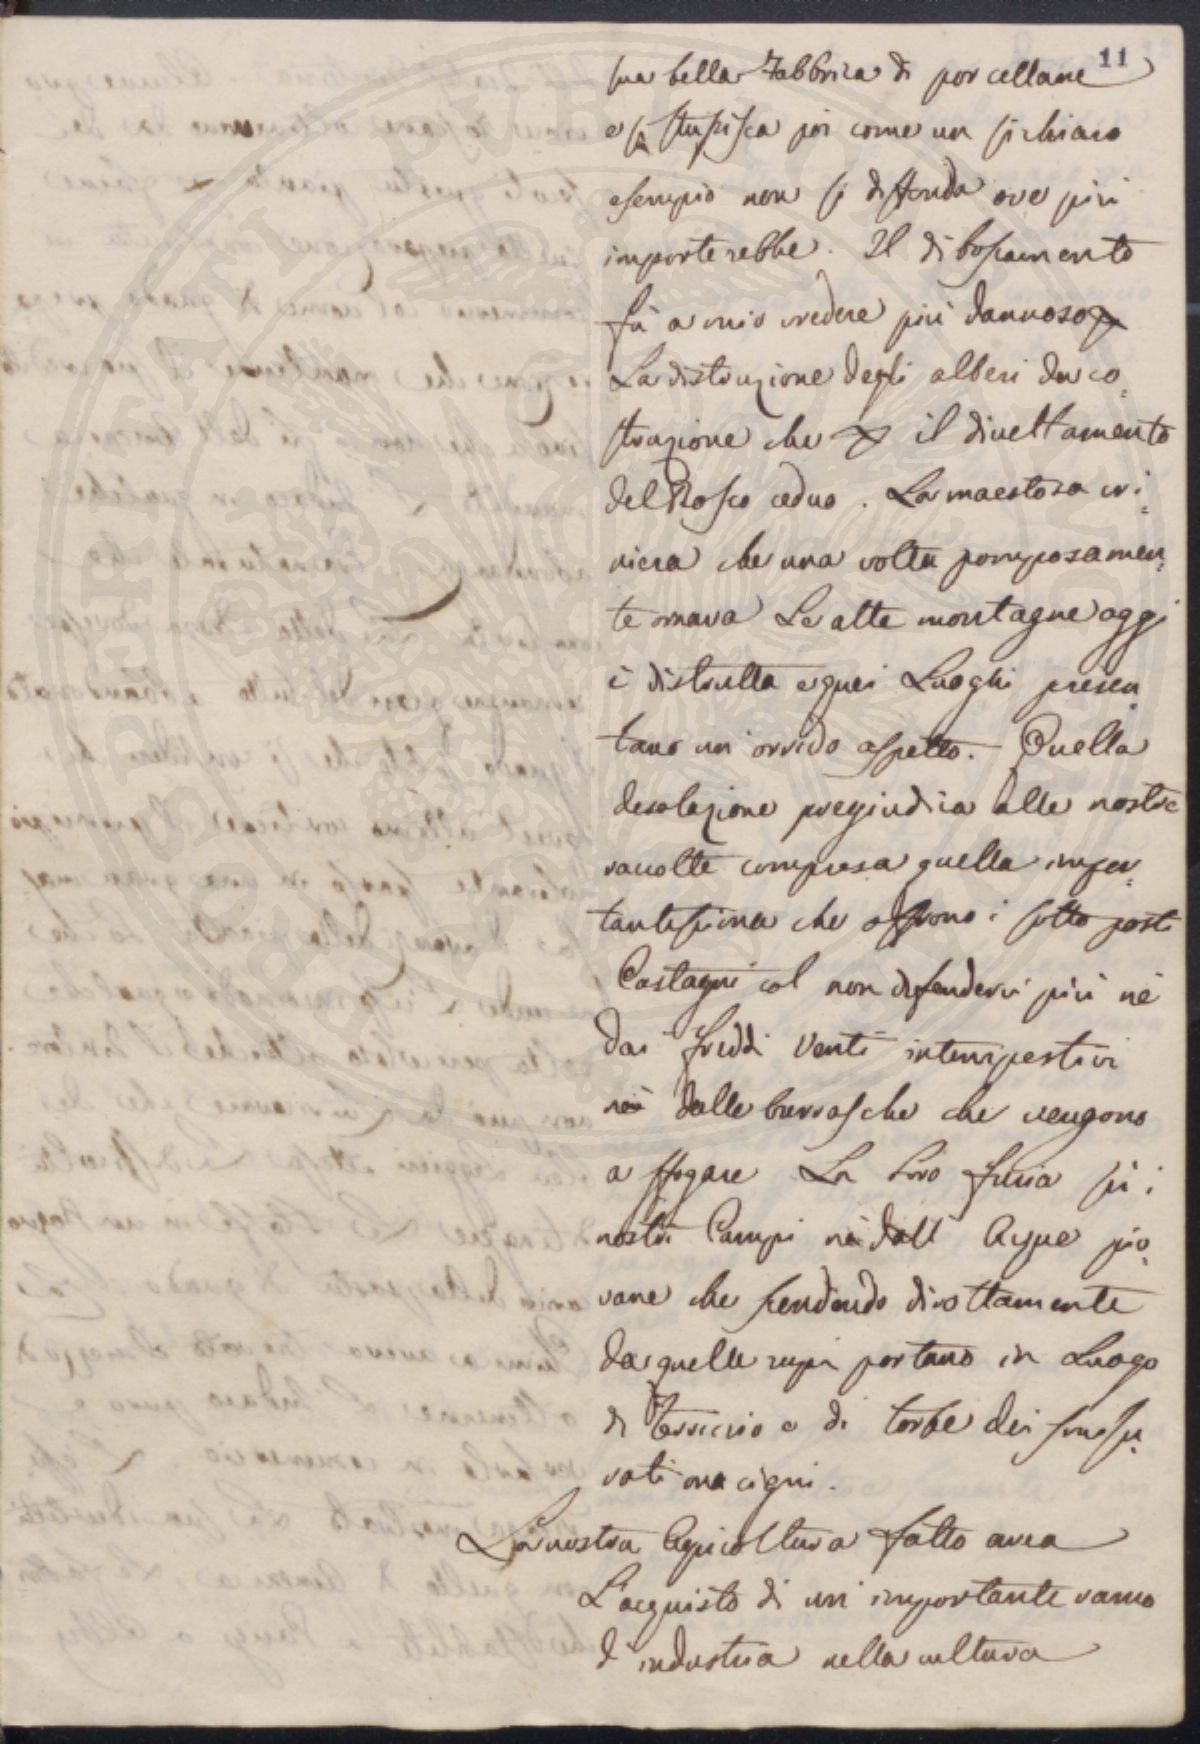 11
sua bella Fabbrica di porcellane
e si stupisca poi come un si chiaro
esempio non si diffonda ove più
importerebbe. Il disboscamento
fù a mio credere più dannoso
La distruzione degli alberi da co-
struzione che il divettamento
del Bosco ceduo. La maestosa cri-
niera che una volta pomposamen-
te ornava Le alte montagne oggi
è distrutta e quei Luoghi presen-
tano un' orrido aspetto. Quella
desolazione pregiudica alle nostre
raccolte compresa quella impor-
tantissima che offrono i sotto posti
Castagni col non difendervi più nè
dai freddi Venti intempestivi
nè dalle burrasche che vengono
a sfogare La Loro furia sù i
nostri Campi nè dall' Acque pio-
vane che scendendo dirottamente
da quelle rupi portano in Luogo
di Terriccio e di torbe dei smosu-
rati macigni.
La nostra Agricoltura fatto avea
L'acquisto di un' importante ramo
d' industria nella cultura